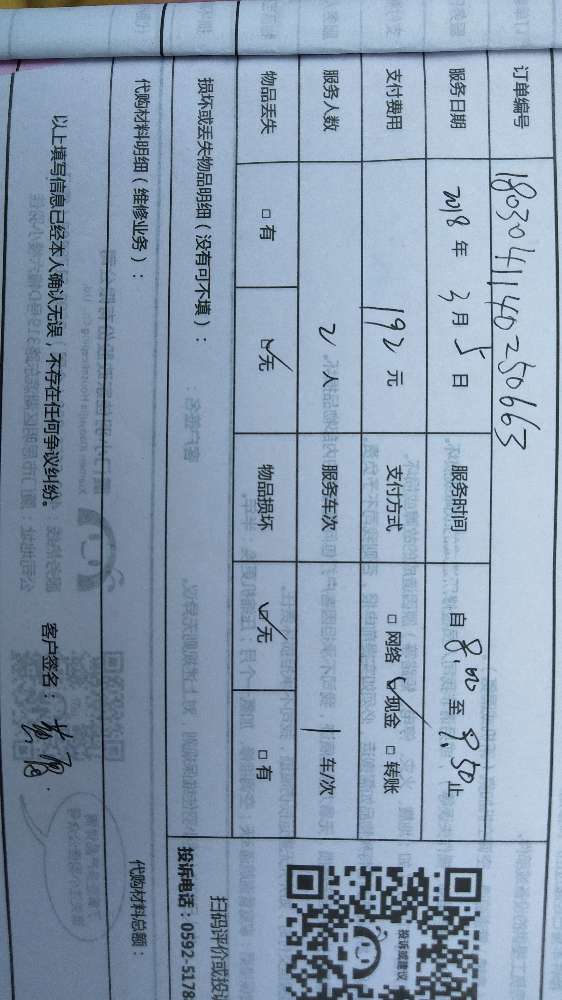 订单编号 1803041140250663
服务日期 2018 年 3 月 5 日 服务时间 自 8:00 至 9:50 止
支付费用 192 元 支付方式 □ 网络 ☑ 现金 □ 转账
服务人数 2 人 服务车次 1 车/次
物品丢失 □ 有 ☑ 无 物品损坏 ☑ 无 □ 有
损坏或丢失物品明细（没有可不填）：
代购材料明细（维修业务）： 代购材料总额：
以上填写信息已经本人确认无误，不存在任何争议纠纷。 客户签名：
投诉或建议
扫码评价或投诉
投诉电话：0592-5178